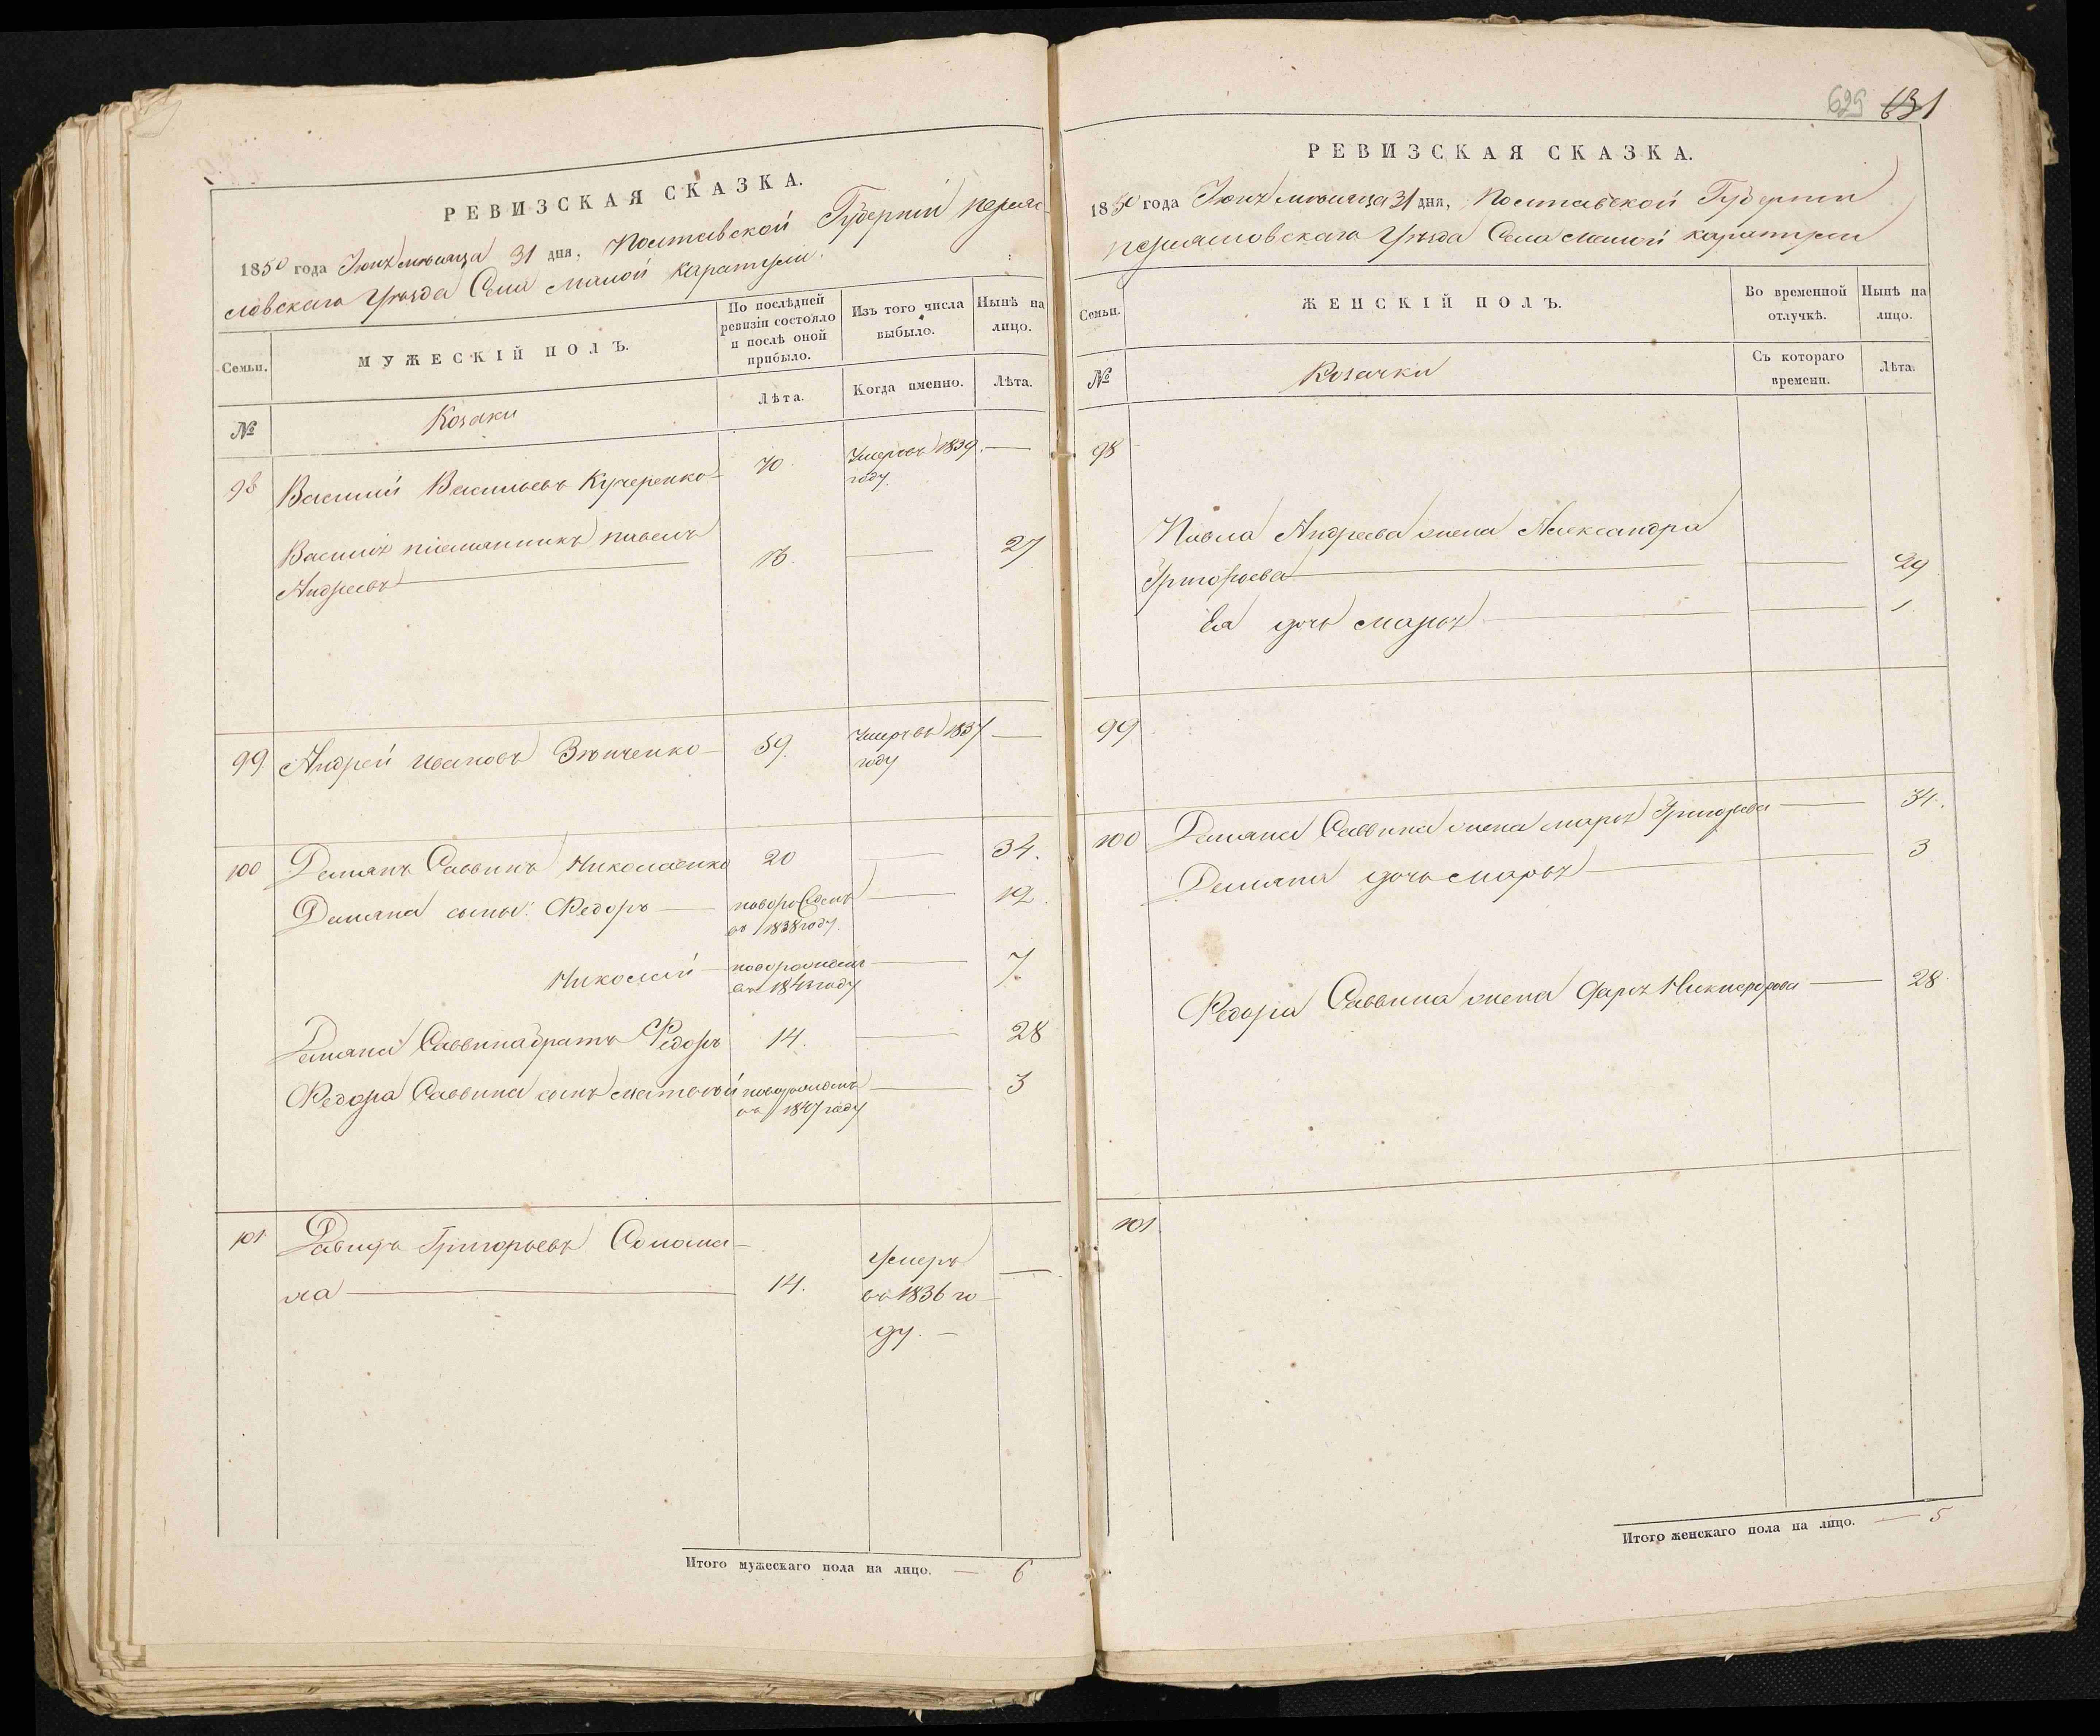 РЕВИЗСКАЯ СКАЗКА.
1850 года Июня месяца 31 дня, Полтавской Губерніи переяс-
ловскаго Уѣзда Села малой каратули.
Семьи.
МУЖЕСКІЙ ПОЛЪ.
По послѣдней ревизіи состояло и послѣ оной прибыло.
Изъ того числа выбыло.
Нынѣ на лицо.
№
Козаки
Лѣта.
Когда именно.
Лѣта.
98 Василий Васильевъ Кучеренко 70. Умеръ въ 1839 году. —
Василія племянникъ павелъ
Андреевъ 13. — 27
99 Андрей Ивановъ Зѣнченко 59. Умеръ въ 1837 году —
100 Демянъ Саввинъ Николаенко 20 — 34.
Демяна сыны: Федоръ — новорожденъ въ 1838 году. — 12.
Николай — новорожденъ въ 1843 году — 7.
Демяна Саввина братъ Федоръ 14. — 28
Федора Саввина сынъ матвѣй новорожденъ въ 1847 году — 3
101 Давидъ Григорьевъ Солома-
ха 14. Умеръ —
въ 1836 го-
ду. —
Итого мужескаго пола на лицо. — 6
625 631
РЕВИЗСКАЯ СКАЗКА.
1850 года Июня месяца 31 дня, Полтавской Губерніи
переяславскаго Уѣзда Села малой каратули
Семьи.
ЖЕНСКІЙ ПОЛЪ.
Во временной отлучкѣ.
Нынѣ на лицо.
№
Козачки
Съ котораго времени.
Лѣта.
98
Павла Андреева жена Александра
Григорьева — 29
Ея дочь марья — 1
99
100 Демяна Саввина жена марья Григорьева — 34.
Демяна дочь марья — 3
Федора Саввина жена дарья Никифорова — 28.
101
Итого женскаго пола на лицо. — 5